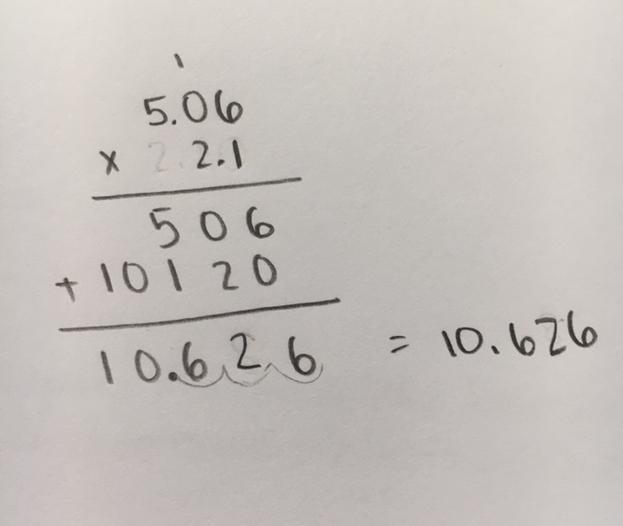 1
5.06
x 2.1
506
+ 10120
10.626 = 10.626